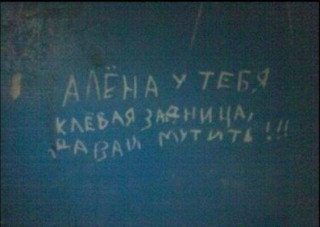 АЛЁНА У ТЕБЯ
КЛЁВАЯ ЗАДНИЦА,
ДАВАЙ МУТИТЬ!!!